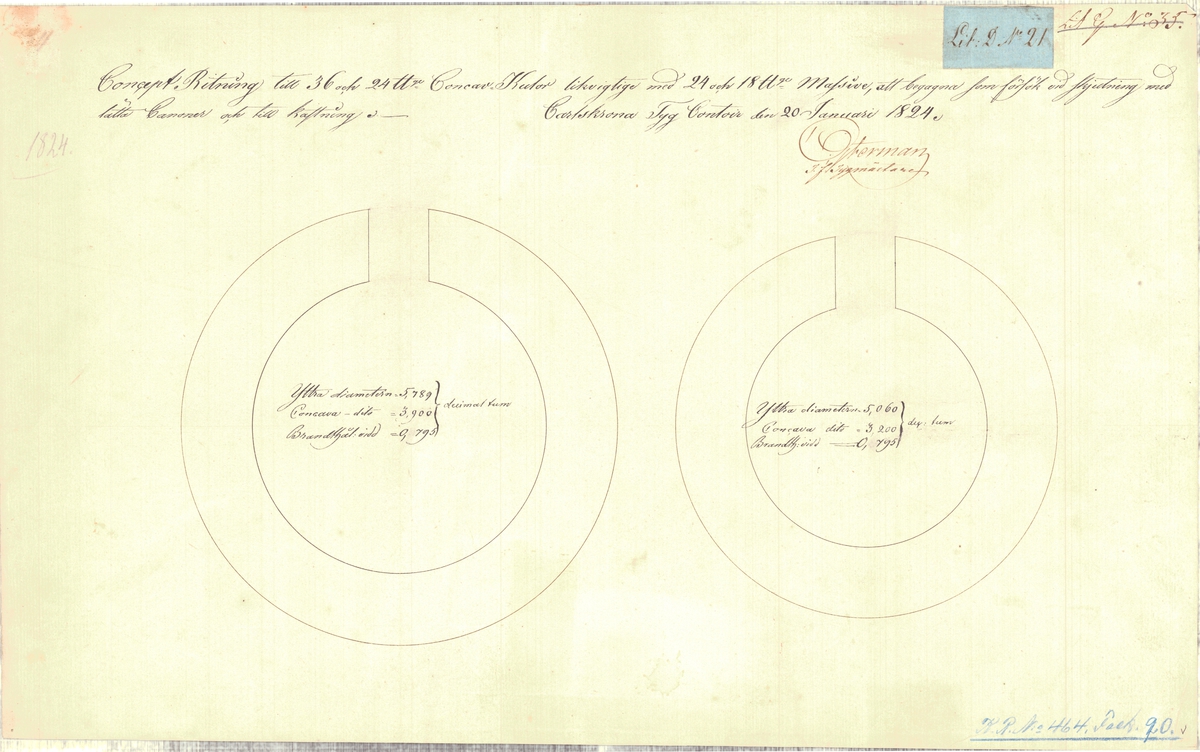 Lit: D. No 21
Concept Ritning till 36 och 24 U:ge Concav. Kulor likvigtige med 24 och 18 U:ge Massive, att begagna som försök vid skjutning med
lätta Canoner och till kastning.
Carlskrona Tyg Contoir den 20 Januari 1824.
1824.
Yttra diametern 5,789
Concava - dito = 3,900
decimal tum
Brandhål: vidd = 0,795
Yttra diametern 5,060
Concava dito = 3,200
dec. tum
Brandh. vidd = 0,795
No 464. Fack. 90.